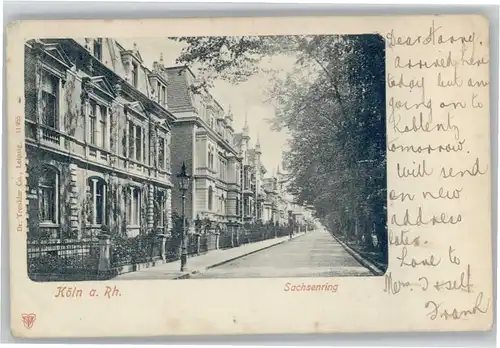 Dr. Trenkler Co., Leipzig.
Köln a. Rh.
Sachsenring
Dear Harry.
arrived here
today but am
going on to
Koblentz
tomorrow.
Will send
on new
address
later.
Love to
self
Frank